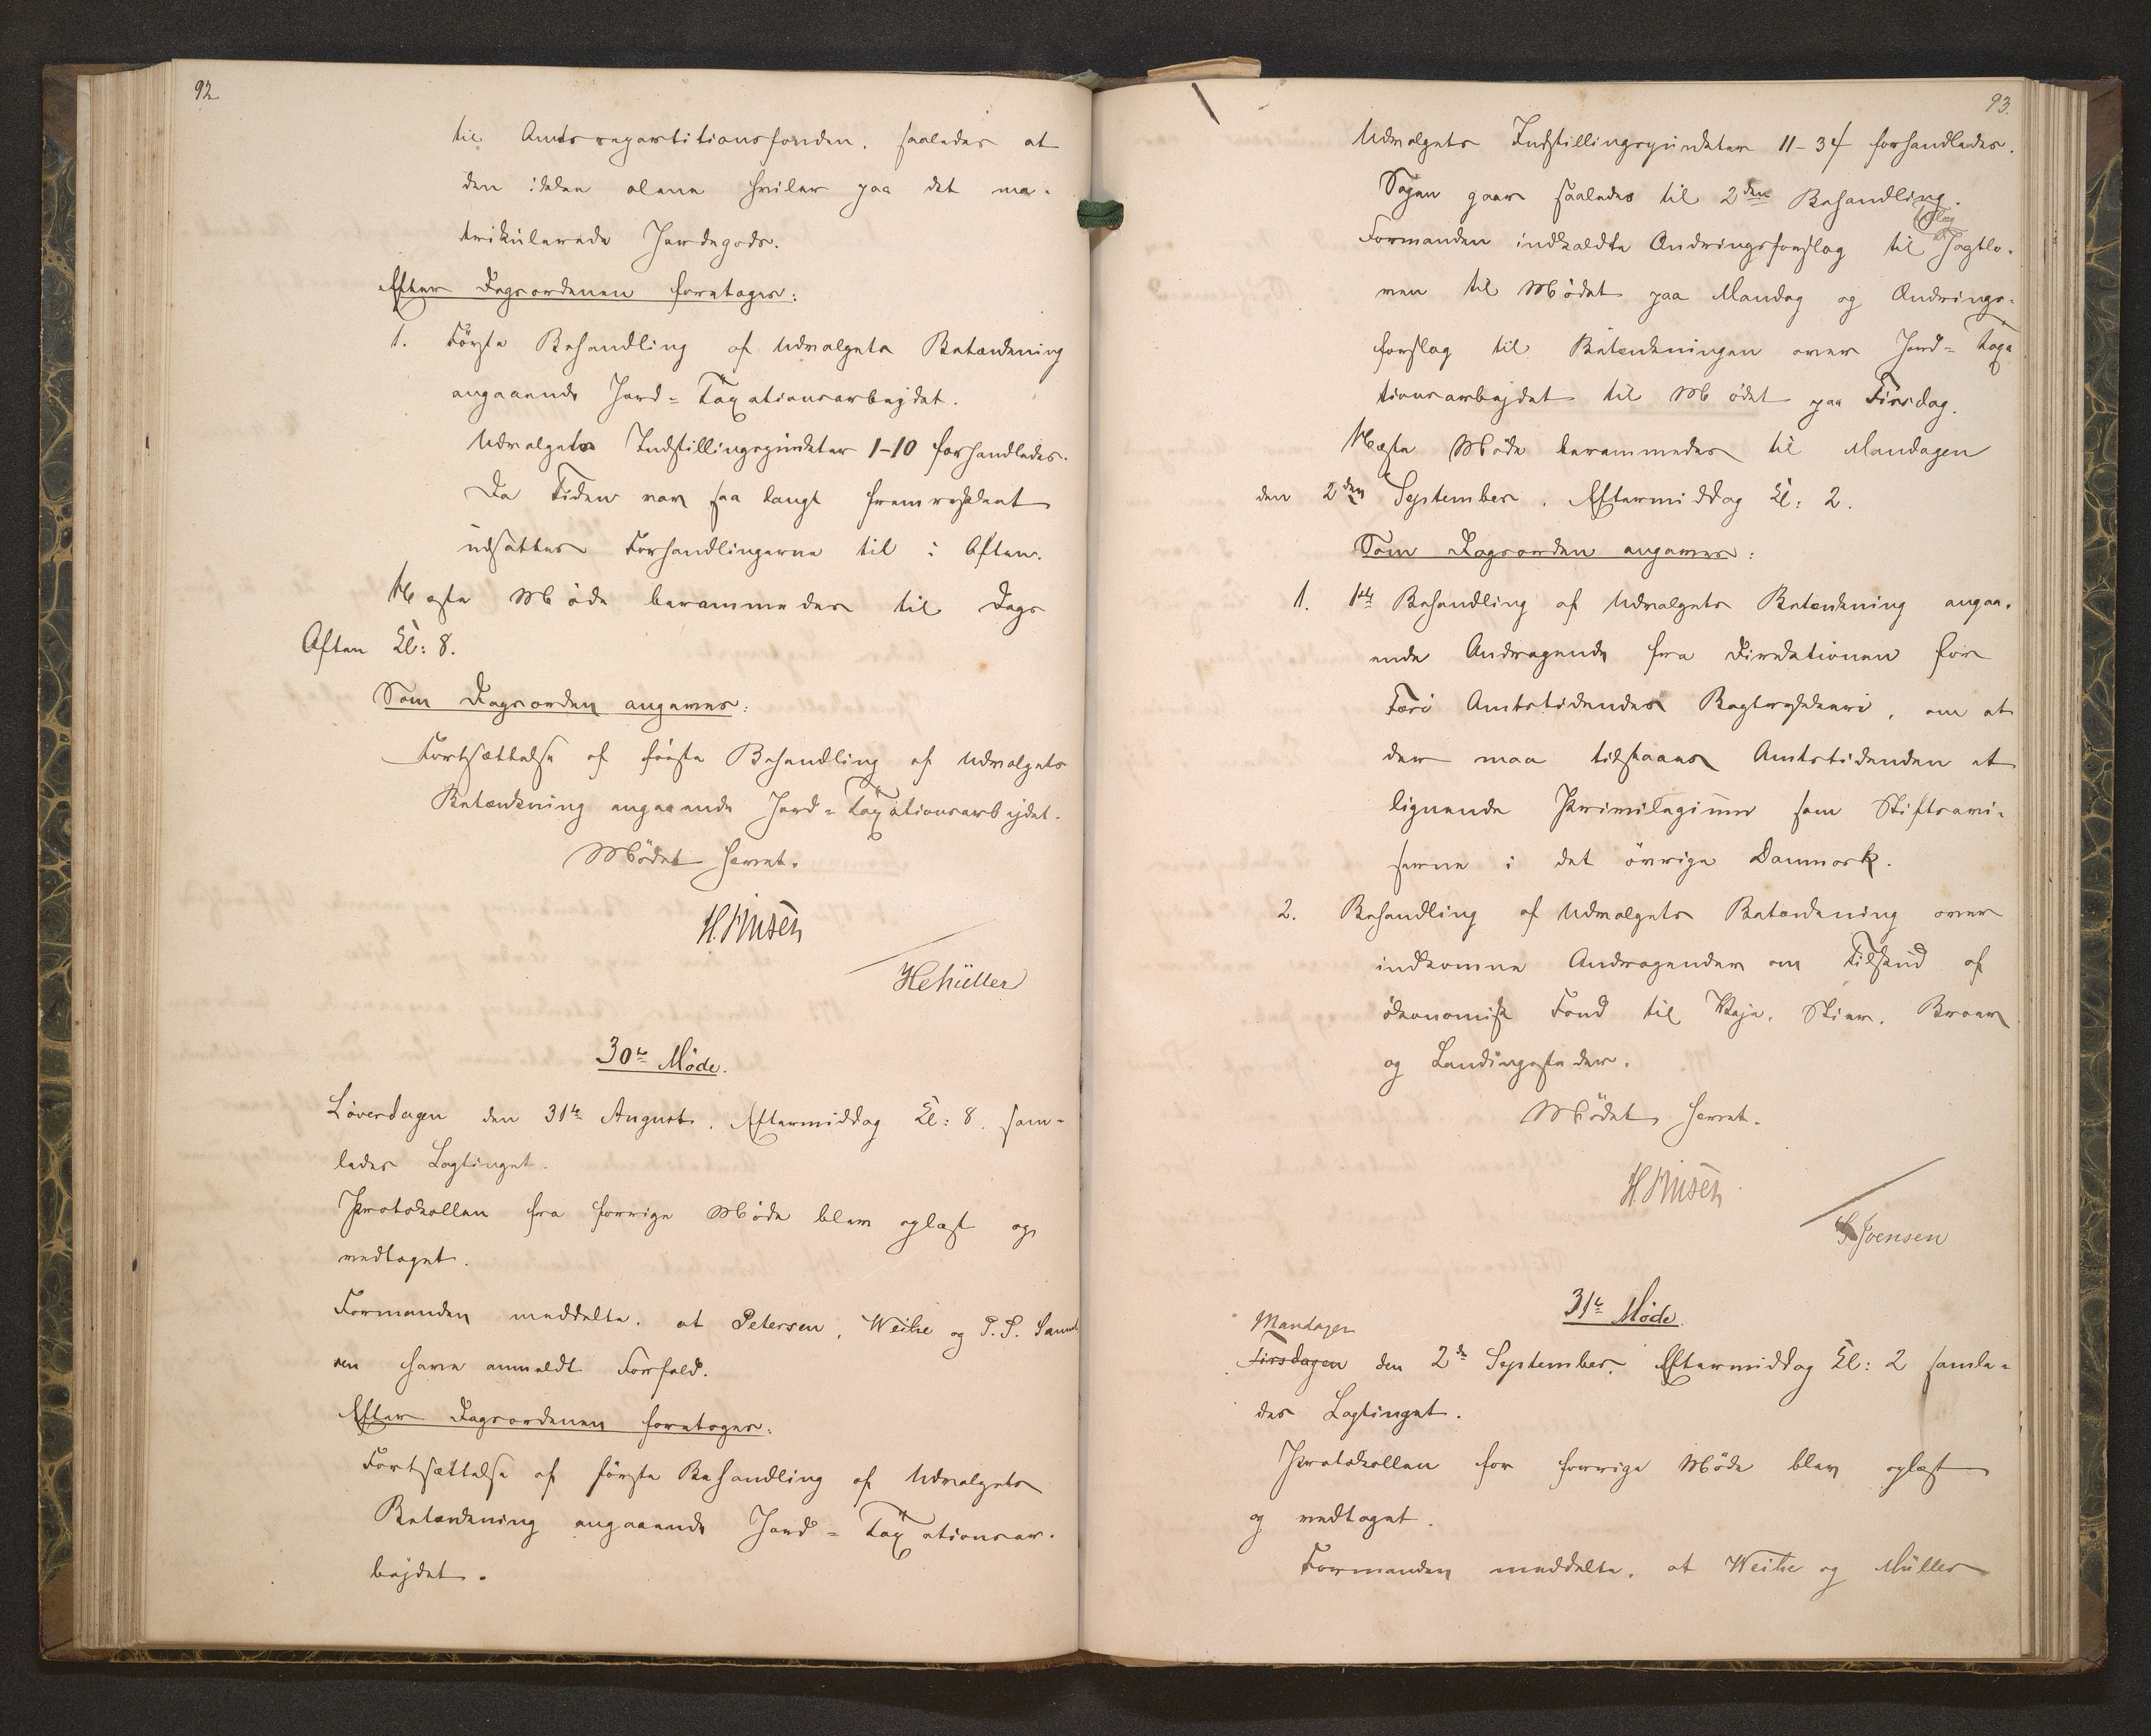 92
til Amtsrepartitionsfonden, saaledes at
den ikke alene hviler paa det ma-
trikulerede Jordegods.
Efter Dagsordenen foretoges:
1. Første Behandling af Udvalgets Betænkning
angaaende Jord-Taxationsarbejdet.
Udvalgets Indstillingspunkter 1-10 forhandledes.
Da Tiden var saa langt fremrykket
udsattes Forhandlingerne til i Aften.
Næste Møde berammedes til Dags
Aften Kl: 8.
Som Dagsorden angaves:
Fortsættelse af første Behandling af Udvalgets
Betænkning angaaende Jord-Taxationsarbejdet.
Mødet hævet.
HCMüller
30te Møde.
Løverdagen den 31te August, Eftermiddag Kl: 8, sam-
ledes Lagtinget.
Protokollen fra forrige Møde blev oplæst og
vedtaget.
Formanden meddelte, at Petersen, Weihe og P. P. Samuel
sen havde anmeldt Forfald.
Efter Dagsordenen foretoges:
Fortsættelse af første Behandling af Udvalgets
Betænkning angaaende Jord-Taxationsar-
bejdet.
93.
Udvalgets Indstillingspunkter 11-34 forhandledes.
Sagen gaar saaledes til 2den Behandling.
Formanden indkaldte Ændringsforslag til Jagtlo-
ven til Mødet paa Mandag og Ændrings-
forslag til Betænkningen over Jord-Taxa
tionsarbejdet til Mødet paa Tirsdag.
Næste Møde berammedes til Mandagen
den 2den September, Eftermiddag Kl: 2.
Som Dagsorden angaves:
1. 1ste Behandling af Udvalgets Betænkning angaa-
ende Andragende fra Direktionen for
Færø Amtstidendes Bogtrykkeri, om at
der maa tilstaaes Amtstidenden et
lignende Privilegium som Stiftsavi-
serne i det øvrige Danmark.
2. Behandling af Udvalgets Betænkning over
indkomne Andragender om Tilskud af
økonomisk Fond til Veje, Stier, Broer
og Landingssteder.
Mødet hævet.
S Joensen
31te Møde.
Mandagen
Tirsdagen den 2den September, Eftermiddag Kl: 2 samle-
des Lagtinget.
Protokollen for forrige Møde blev oplæst
og vedtaget.
Formanden meddelte, at Weihe og Müller